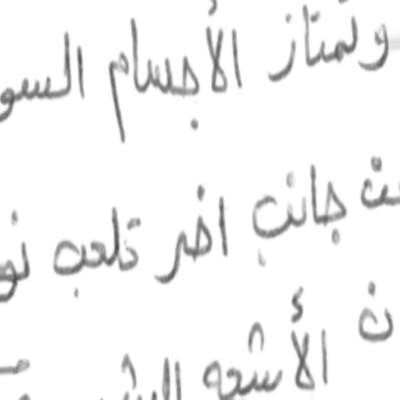 وتمتاز الأجسام السو
من جانب اخر تلعب نو
ن الأشعه الشمسية